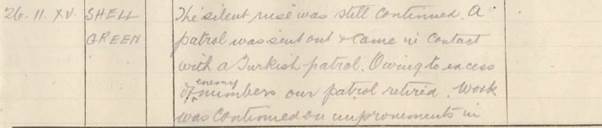 26.11.XV. SHELL GREEN The silent ruse was still continued. A
patrol was sent out & came in contact
with a Turkish patrol. Owing to excess
of enemy numbers our patrol retired. Work
was continued on improvements in